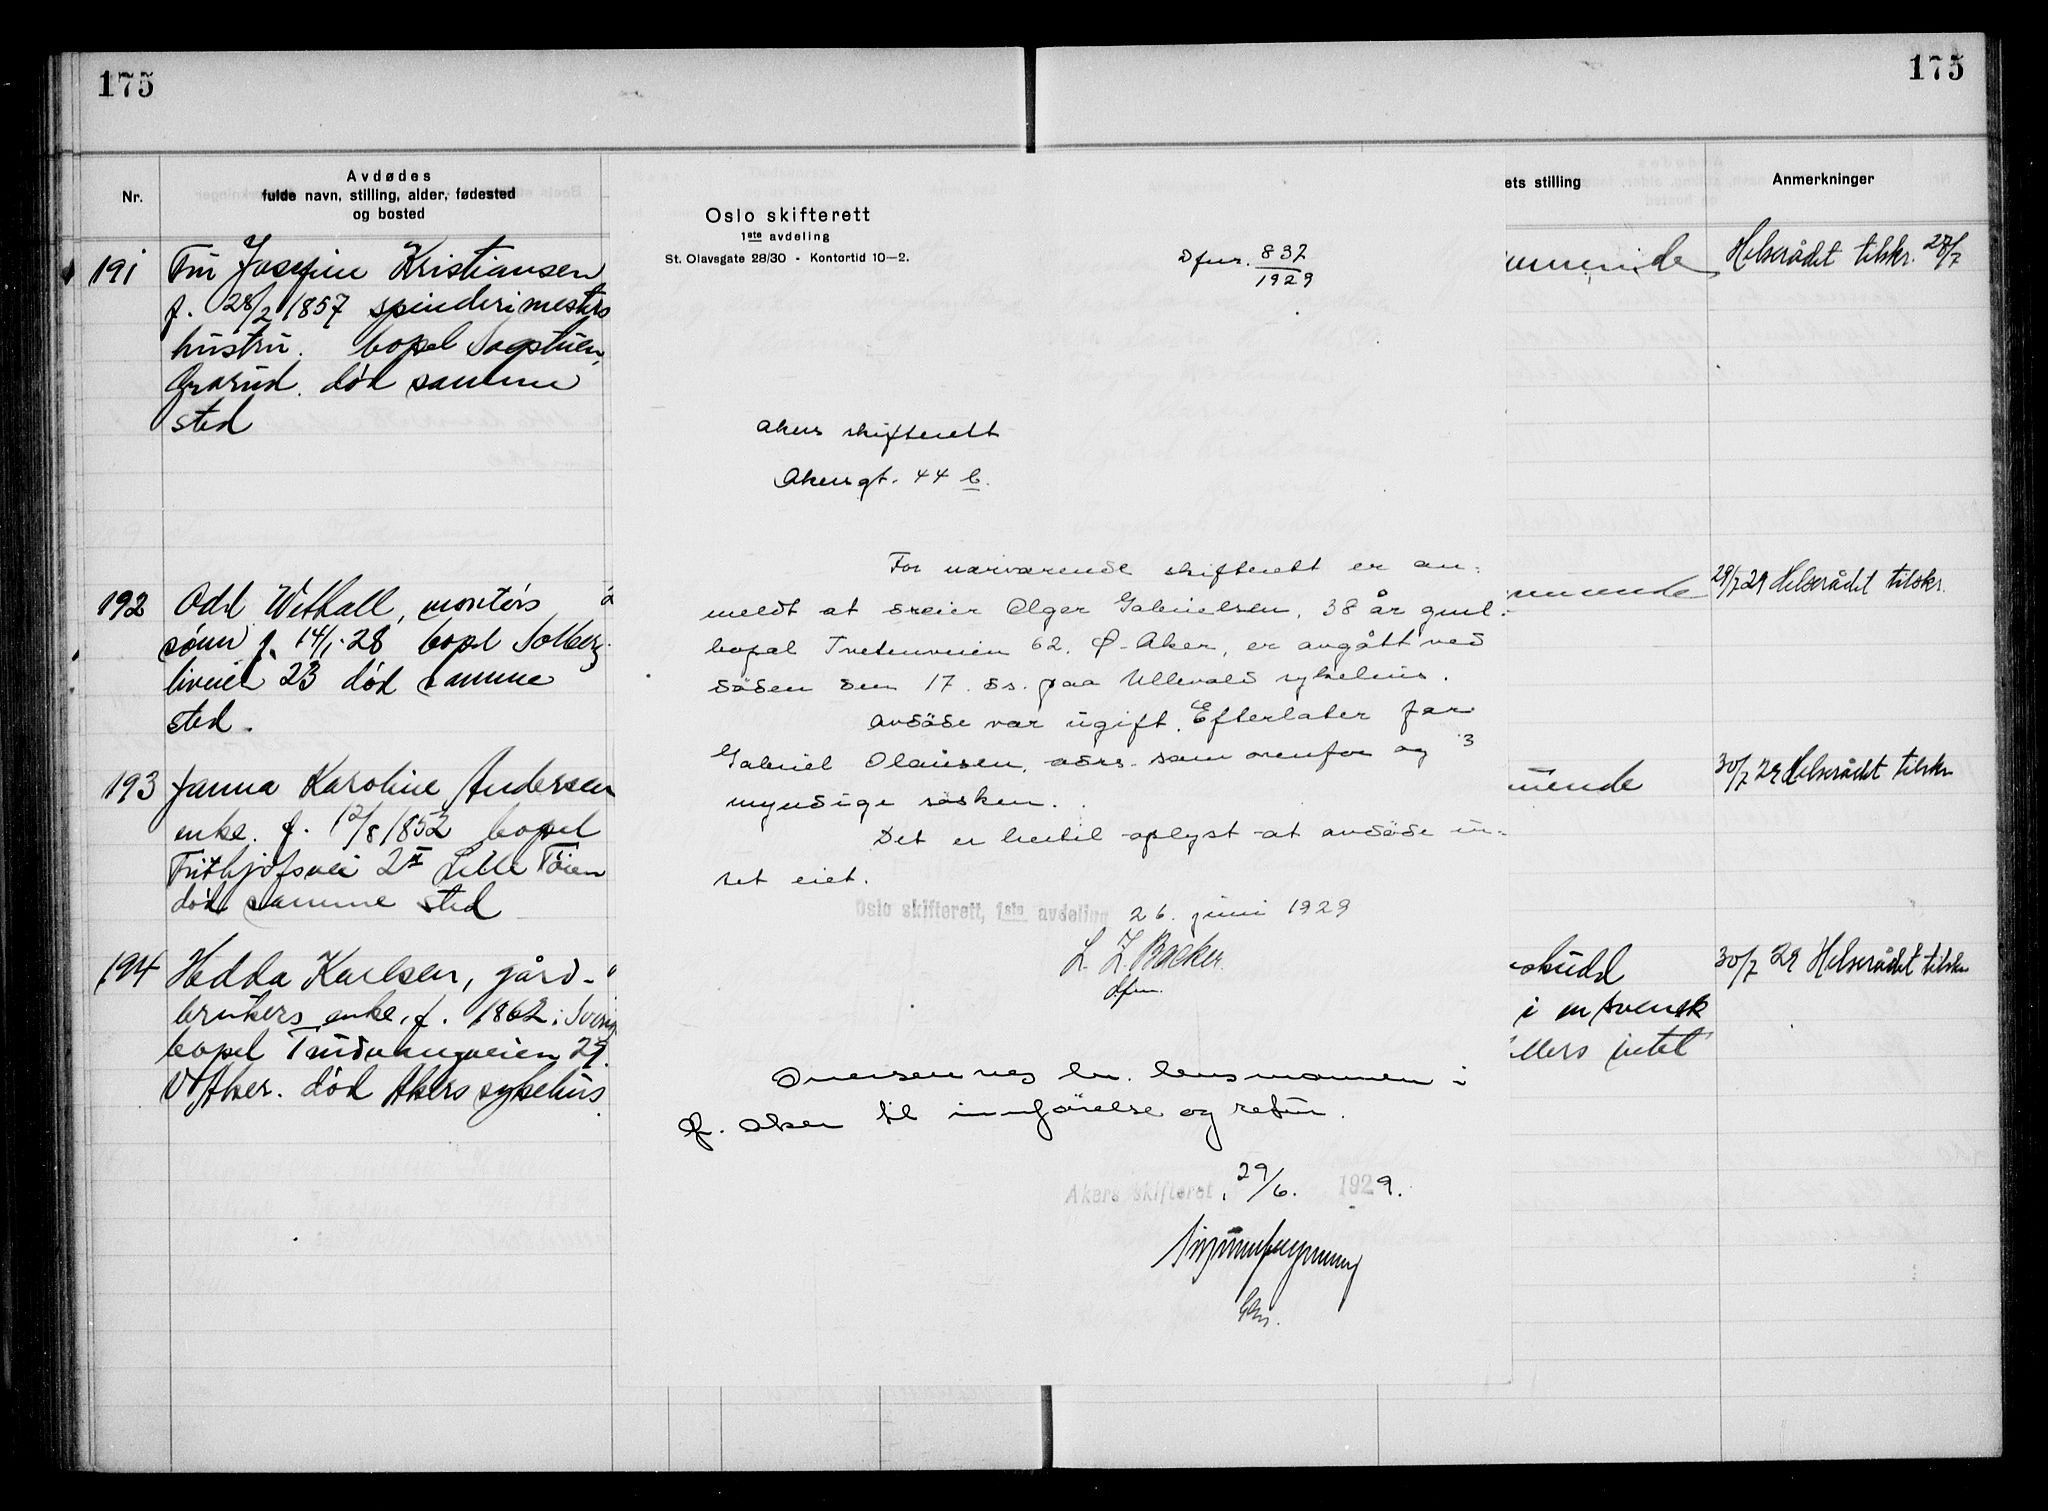 175
175
Nr.
Avdødes
fulde navn, stilling, alder, fødested
og bosted
191
Fru Josefine Kristiansen
f. 28/2 1857 spinderimesters
hustru. bopel Sagstuen,
Grorud. død samme
sted
192
Odd Wethall, montørs
sønn f. 14/1-28 bopel Solberg
liveien 23 død samme
sted.
193
Janna Karoline Andersen
enke. f. 12/8 1852 bopel
Frithjofsvei 2 II Lille Tøien
død samme sted
194
Hedda Karlsen, gård-
brukers enke, f. 1862 i Sverige
bopel Trudvangveien 29.
V. Aker. død Akers sykehus
Oslo skifterett
1ste avdeling
St. Olavsgate 28/30 - Kontortid 10-2.
Dfnr. 832
1929
Akers skifterett
Akersgt. 44 b.
For nærværende skifterett er an-
meldt at dreier Olger Gabrielsen, 38 år gml.
bopæl Tvetenveien 62. Ø-Aker, er avgått ved
döden den 17. ds. paa Ullevaal sykehus.
Avdöde var ugift. Efterlater far
Gabriel Olausen, adrs. som ovenfor og 3
myndige sösken.
Det er hertil oplyst at avdöde in-
tet eiet.
Oslo skifterett, 1ste avdeling 26. juni 1929
L. Z. Backer.
dfm.
Oversendes hr. lensmannen i
Ø. Aker til innförelse og retur.
Akers skifteret, 29/6. 1929.
ets stilling
Anmerkninger
Helserådet tilskr. 27/7
29/7 29 Helserådet tilskr.
mende
30/7 29 Helserådet tilskr
skudd
i en svensk
ellers intet
30/7 29 Helserådet tilskr